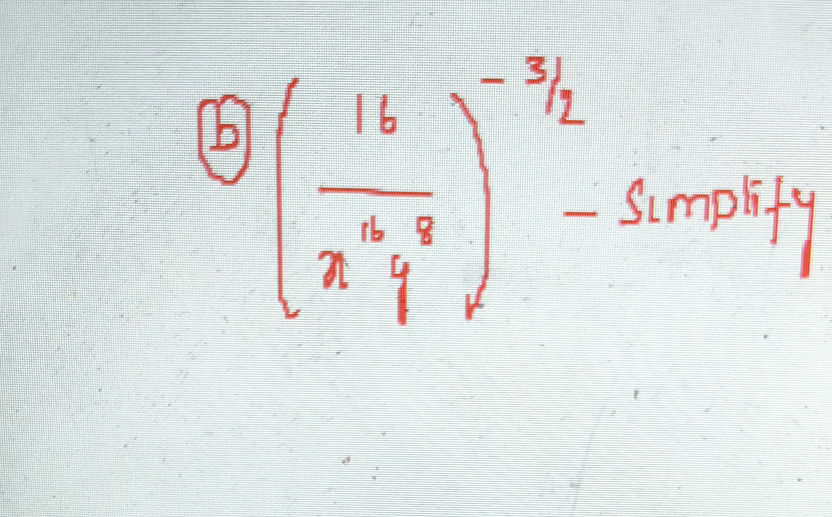 b (16/x^16 y^8)^-3/2 - Simplify